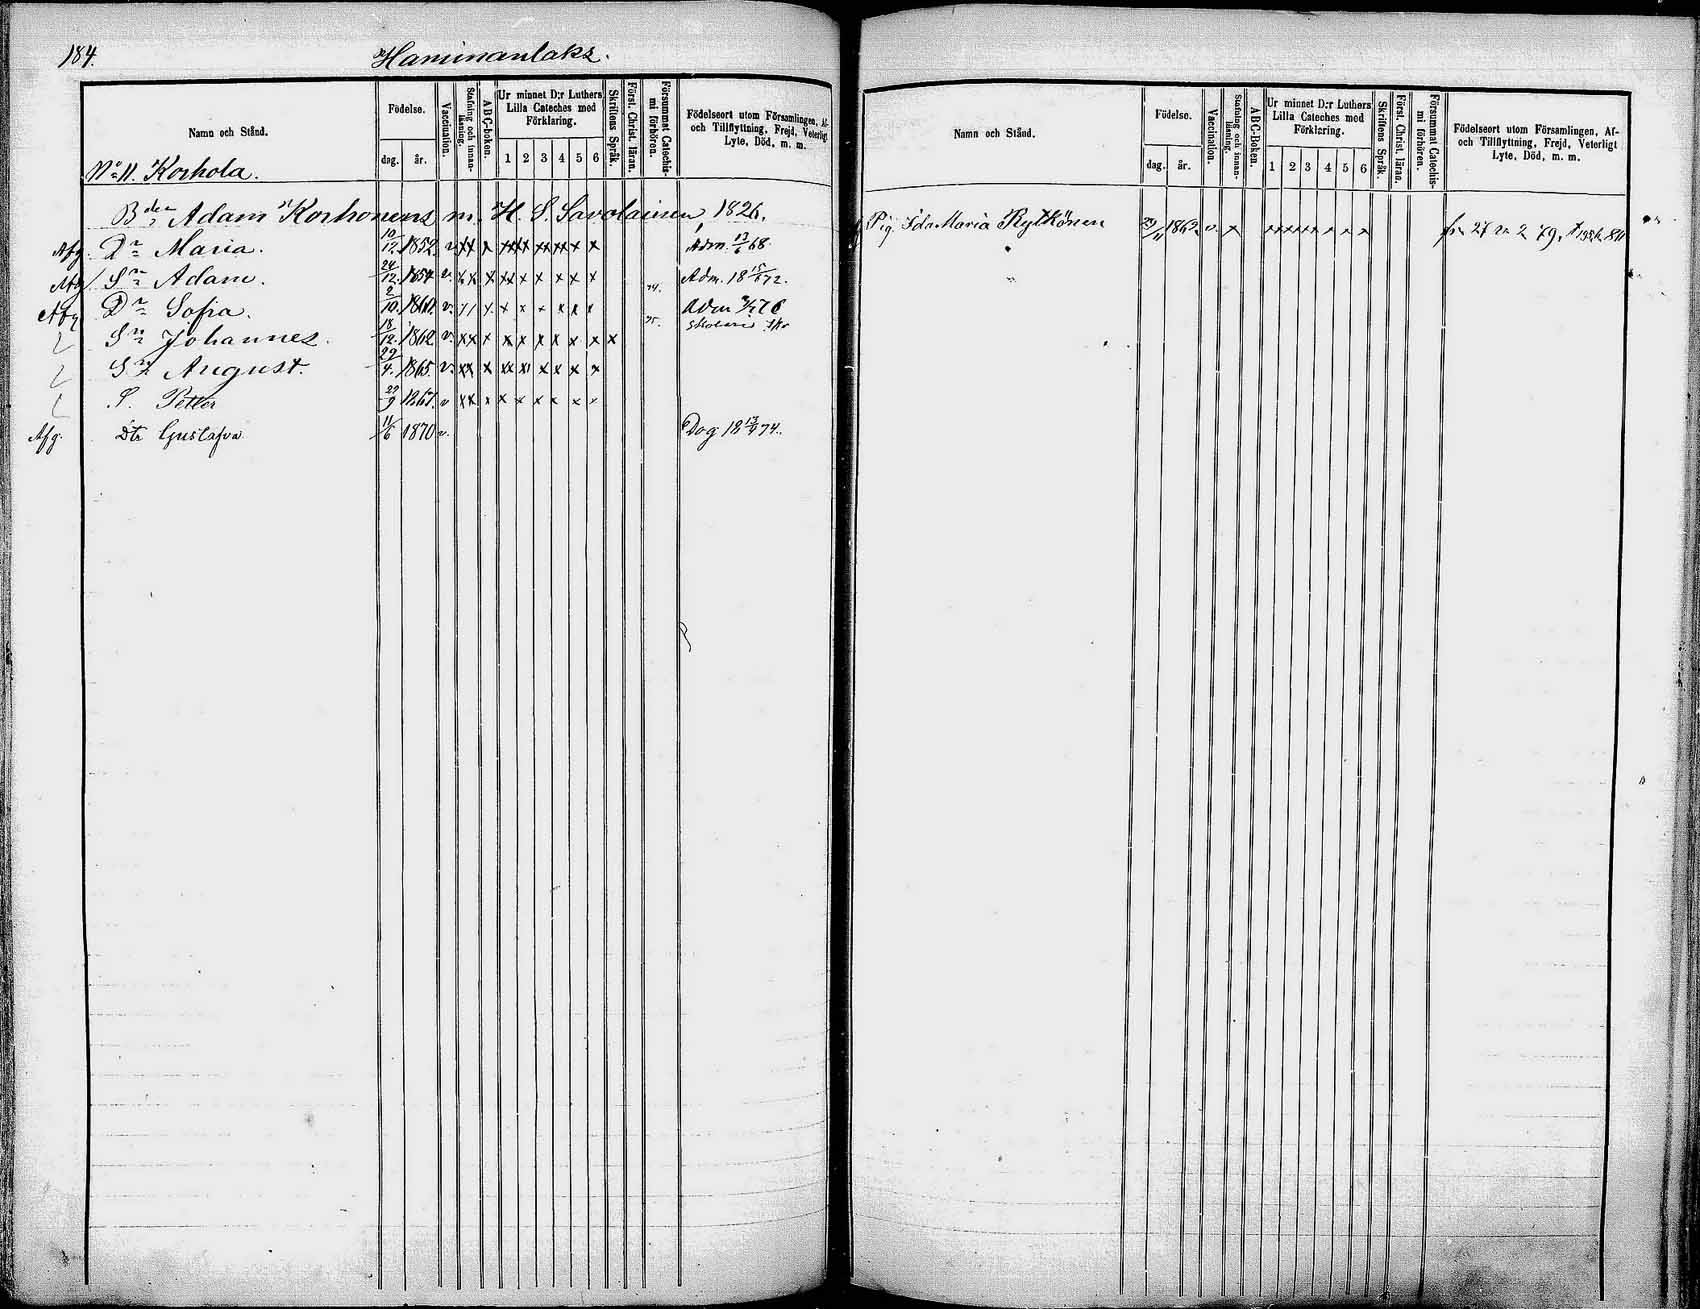 184.
Haminanlaks.
Namn och Stånd.
Födelse.
dag. år.
Vaccination.
Stafning och innanläsning.
ABC-boken.
Ur minnet D:r Luthers Lilla Cateches med Förklaring.
1 2 3 4 5 6
Skriftens Språk.
Först. Christ. läran.
Försummat Catechismi förhören.
Födelseort utom Församlingen, Af- och Tillflyttning, Frejd, Veterligt Lyte, Död, m. m.
No 11. Korhola.
Bden Adam Korhonens m. H. S. Savolainen, 1826.
Afg. Dr Maria. 10/12. 1852. v. xx x xx xx xx xx x x Adm. 13/6 68.
Sn Adam. 24/12. 1854 v. xx x xx x x x x x 74. Adm. 18 15/6 72.
Afg Dr Sofia. 2/10. 1860. v. x x x x x x 75. Adm 76
Sn Johannes. 18/12. 1862 v. xx x x x x x x x x
Sn August. 29/4. 1865. v. xx x xx x x x x x
S. Petter 29/9 1867. v xx x x x x x x x
Afg. Dtr Gustafva 11/6 1870 v. Dog 18 74.
Namn och Stånd.
Födelse.
dag. år.
Vaccination.
Stafning och innanläsning.
ABC-Boken.
Ur minnet D:r Luthers Lilla Cateches med Förklaring.
1 2 3 4 5 6
Skriftens Språk.
Först. Christ. läran.
Försummat Catechismi förhören.
Födelseort utom Församlingen, Af- och Tillflyttning, Frejd, Veterligt Lyte, Död, m. m.
Pig. Ida Maria Rytkönen 29/11 1862 v. x x x x x x x 79,